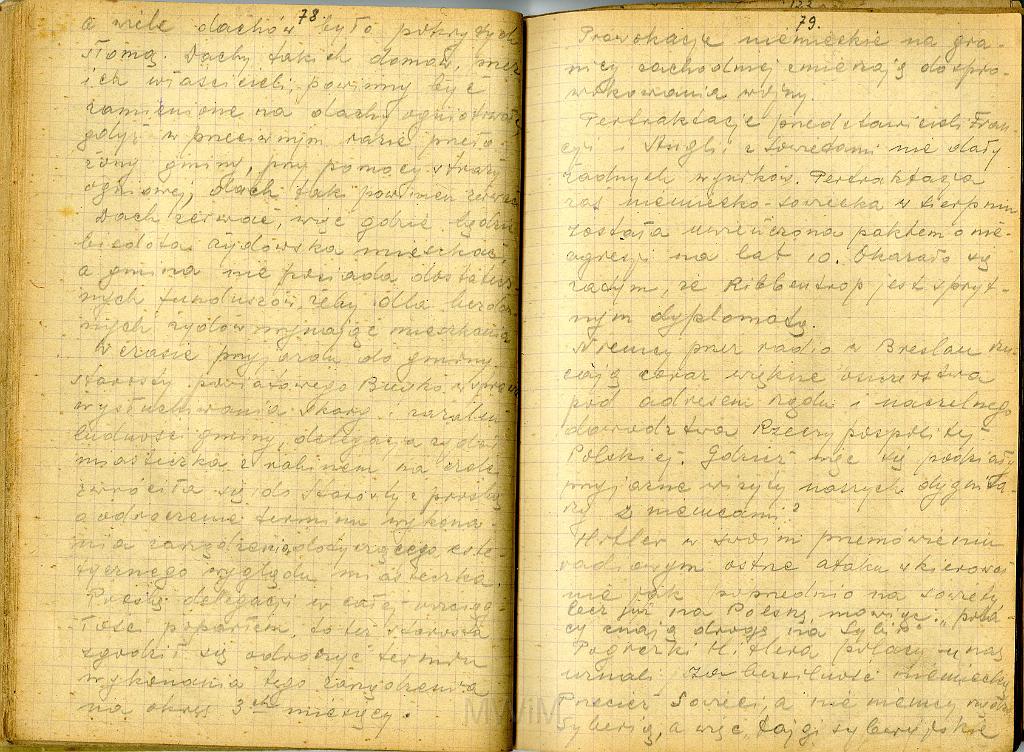 78
a wiele dachów było pokrytych
słomą. Dachy takich domów, przez
ich właścicieli, powinny być
zamienione na dachy ogniotrwałe
gdyż w przeciwnym razie przeło-
żony gminy, przy pomocy straży
ogniowej, dach tak powinien zerwać
Dach zerwać, więc gdzie będzie
biedota żydowska mieszkać,
a gmina nie posiada dostatecz-
nych funduszów, żeby dla bezdom-
nych żydów wynająć mieszkania
W czasie przyjazdu do gminy
starosty powiatowego w sprawie
wysłuchiwania skarg i zażaleń
ludności gminy, delegacja żydów
miasteczka z rabinem na czele
zwróciła się do Starosty z prośbą
o odroczenie terminu wykona-
nia zarządzenia, dotyczącego este-
tycznego wyglądu miasteczka.
Prośbę delegacji w całej rozcią-
łości poparłem, to też starosta
zgodził się odroczyć termin
wykonania tego zarządzenia
na okres 3ch miesięcy.
122
79.
Prowokacje niemieckie na gra-
nicy zachodniej zmierzają do spro-
wokowania wojny.
Pertraktacje przedstawicieli Fran-
cji i Anglii z Sowietami nie dały
żadnych wyników. Pertraktacja
zaś niemiecko-sowiecka w sierpniu
została uwieńczona paktem o nie-
agresji na lat 10. Okazało się
zatym, że Ribbentrop jest spryt-
nym dyplomatą.
Niemcy przez radio z Breslau rzu-
cają coraz większe oszczerstwa
pod adresem rządu i naczelnego
dowództwa Rzeczypospolitej
Polskiej. Gdzież więc się podziały
przyjazne wizyty naszych dygnita-
rzy z niemcami?
Hitler w swoim przemówieniu
radiowym ostrze ataku skierował
nie jak poprzednio na sowiety
lecz już na Polskę, mówiąc: "pola-
cy znają drogę na Sybir"
Pogróżki Hitlera polacy u nas
uznali za bezsilność niemiecką
Przecież Sowieci, a nie niemcy
Syberią, a więc "tajgi syberyjskie
MWiM